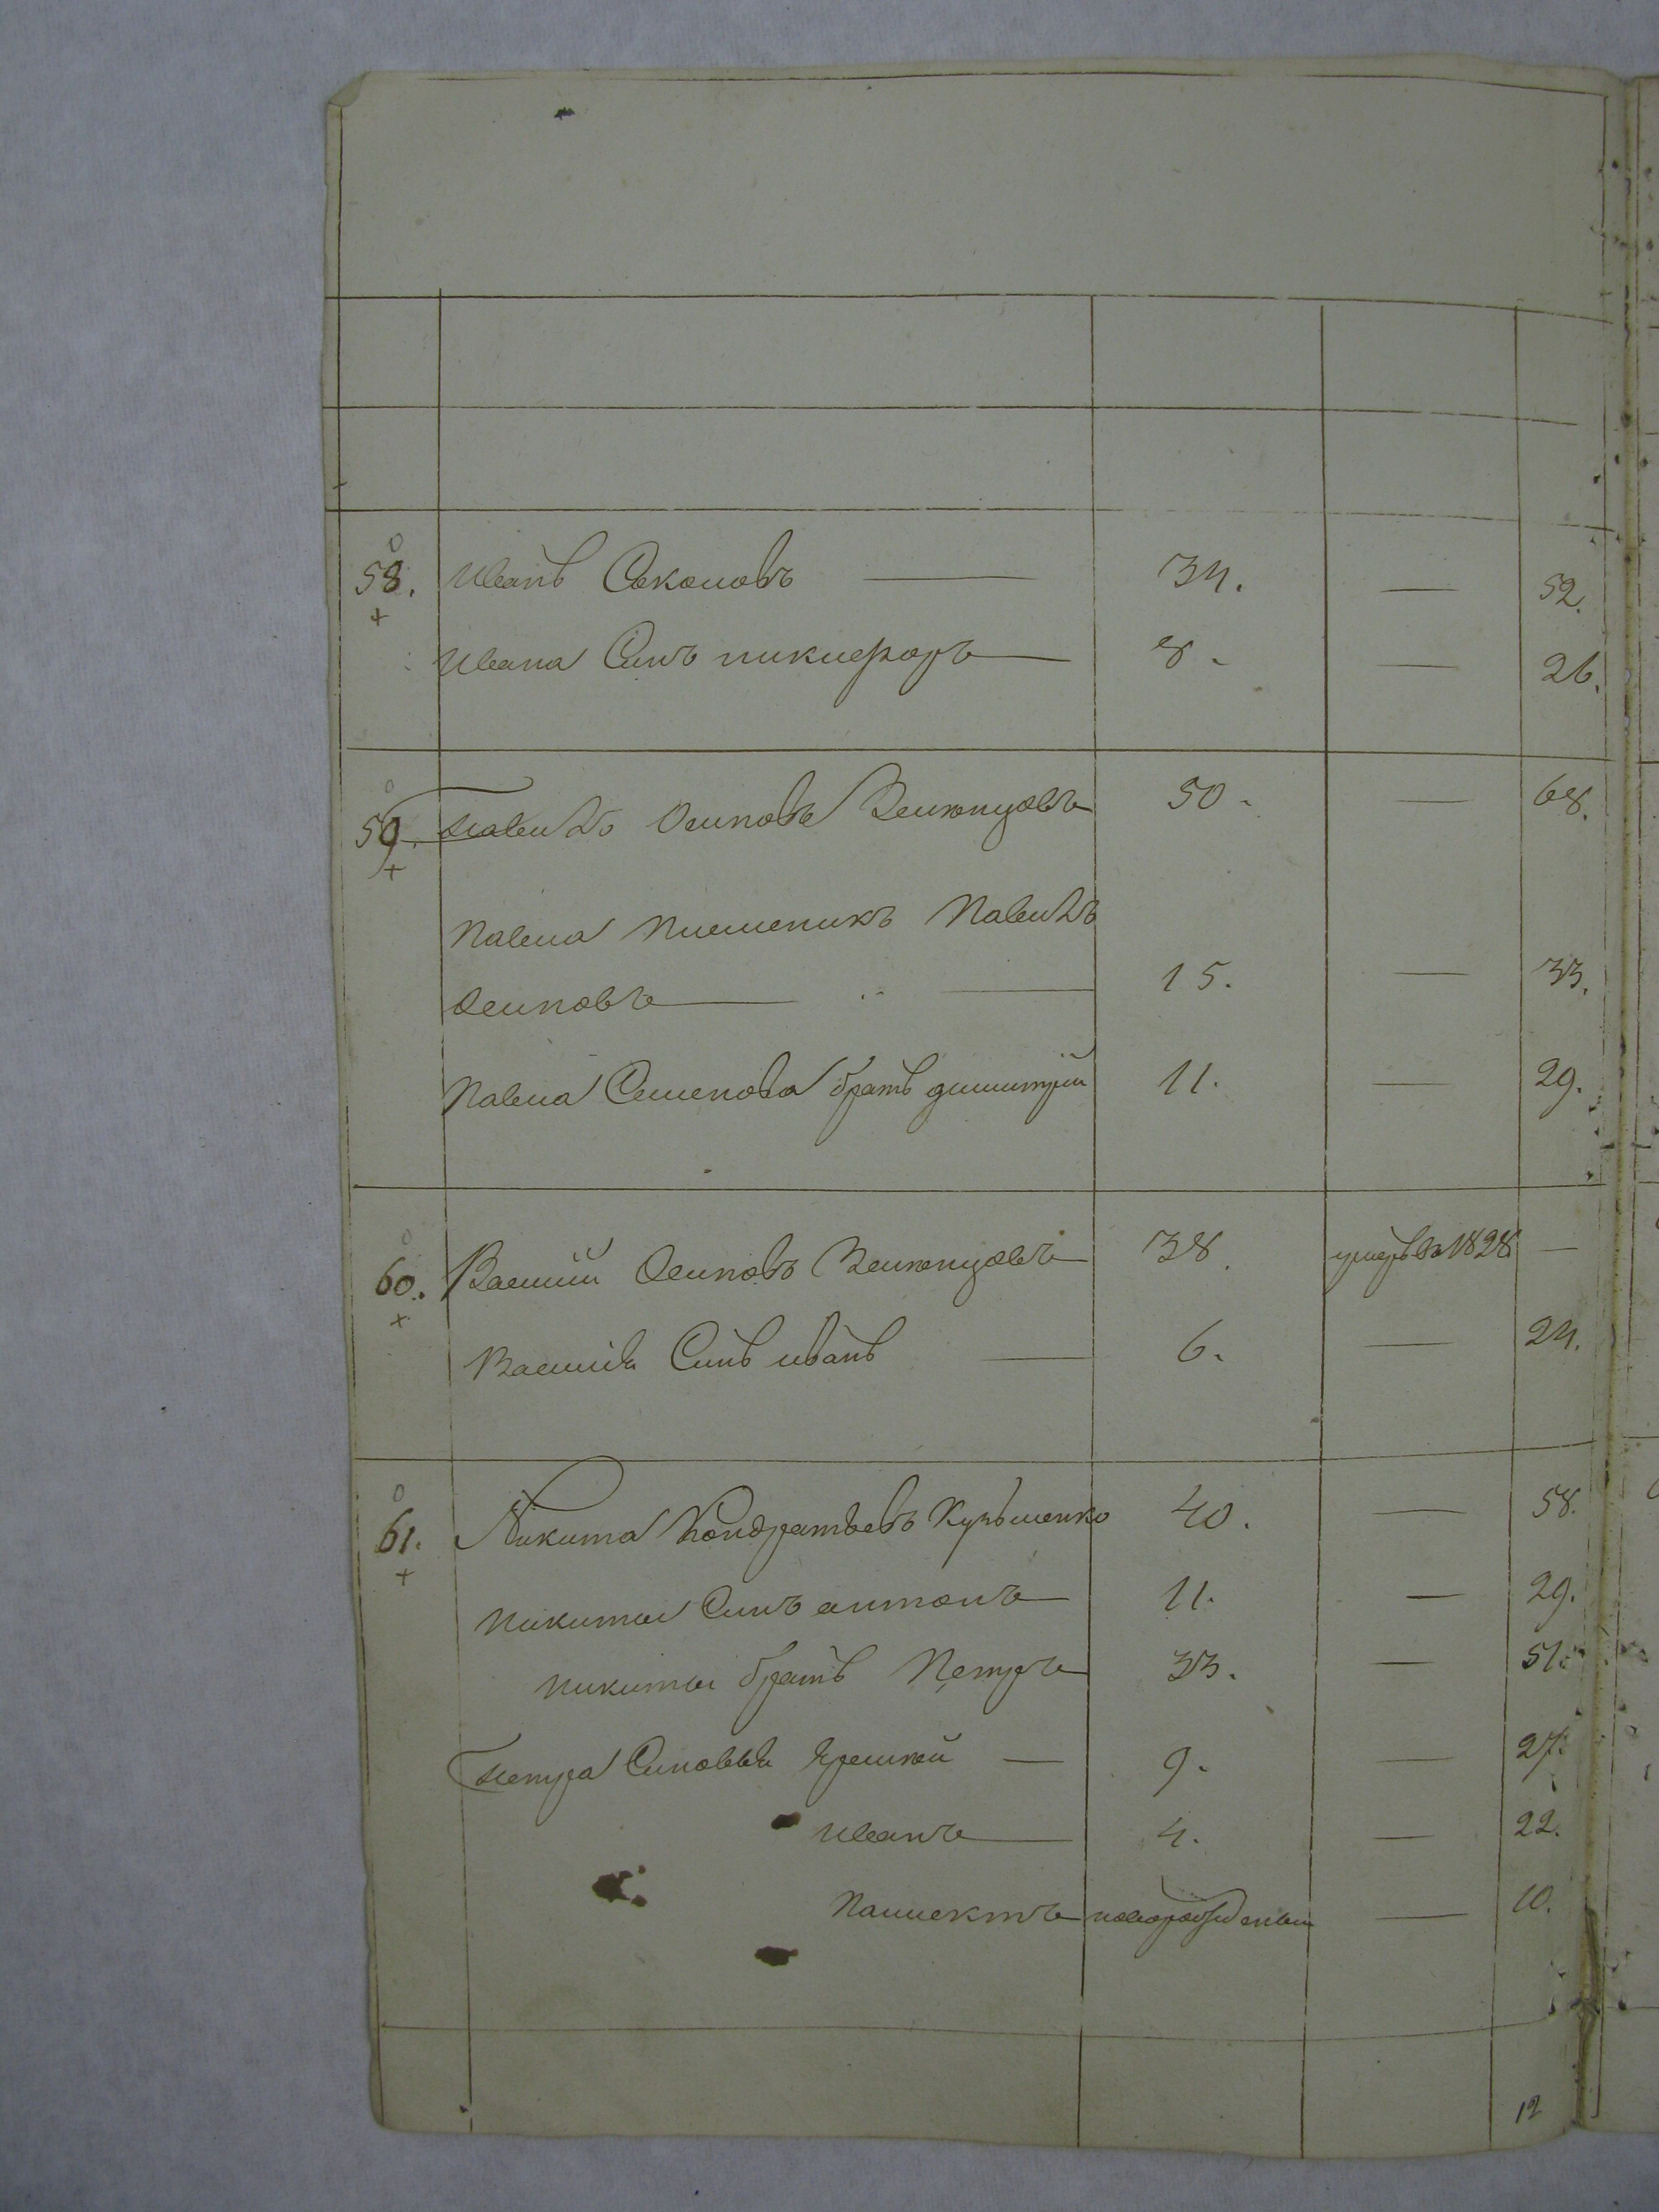 58. Иванъ Соколовъ — 34. — 52.
Ивана Сынъ никифоръ — 8. — 26.
59. Павелъ Осиповъ Велконцовъ 50. — 68.
Павла Племеникъ Павелъ
Осиповъ — 15. — 33.
Павла Семенова братъ димитрій 11. — 29.
60. Василій Осиповъ Велконцовъ 38. умеръ въ 1828 —
Василія Сынъ иванъ — 6. — 24.
61. Никита Кондратьевъ Кузьменко 40. — 58.
Никиты Сынъ антонъ 11. — 29.
никиты братъ Петръ 33. — 51.
Петра Сыновья — 9. — 27.
Иванъ — 4. — 22.
новорожденный — 10.
12